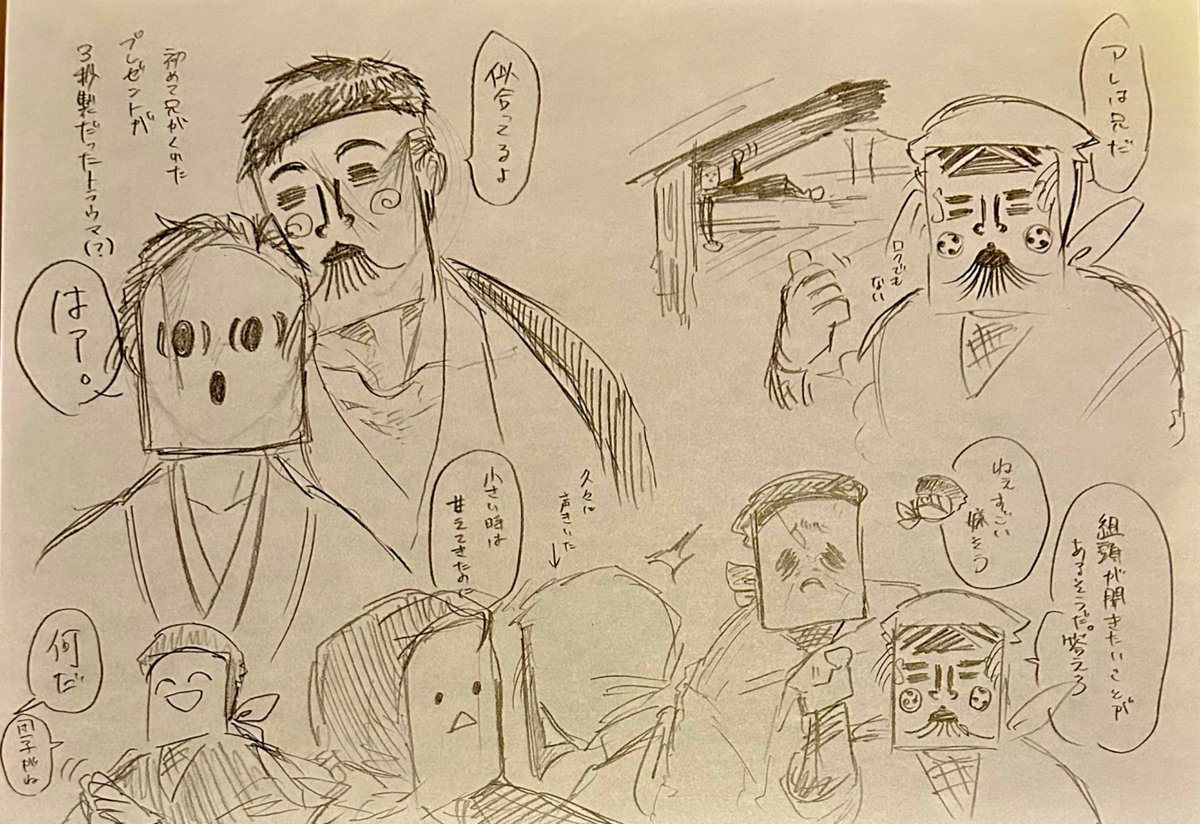 アレは兄だ
ロクでも
ない
似合ってるよ
初めて兄がくれた
プレゼントが
3秒製だったトラウマ(?)
はァ。
ねえすごい
嫌そう
組頭が聞きたいことが
あるそうだ。答えろ
久々に
声きいた
小さい時は
甘えてきたのに
何だ